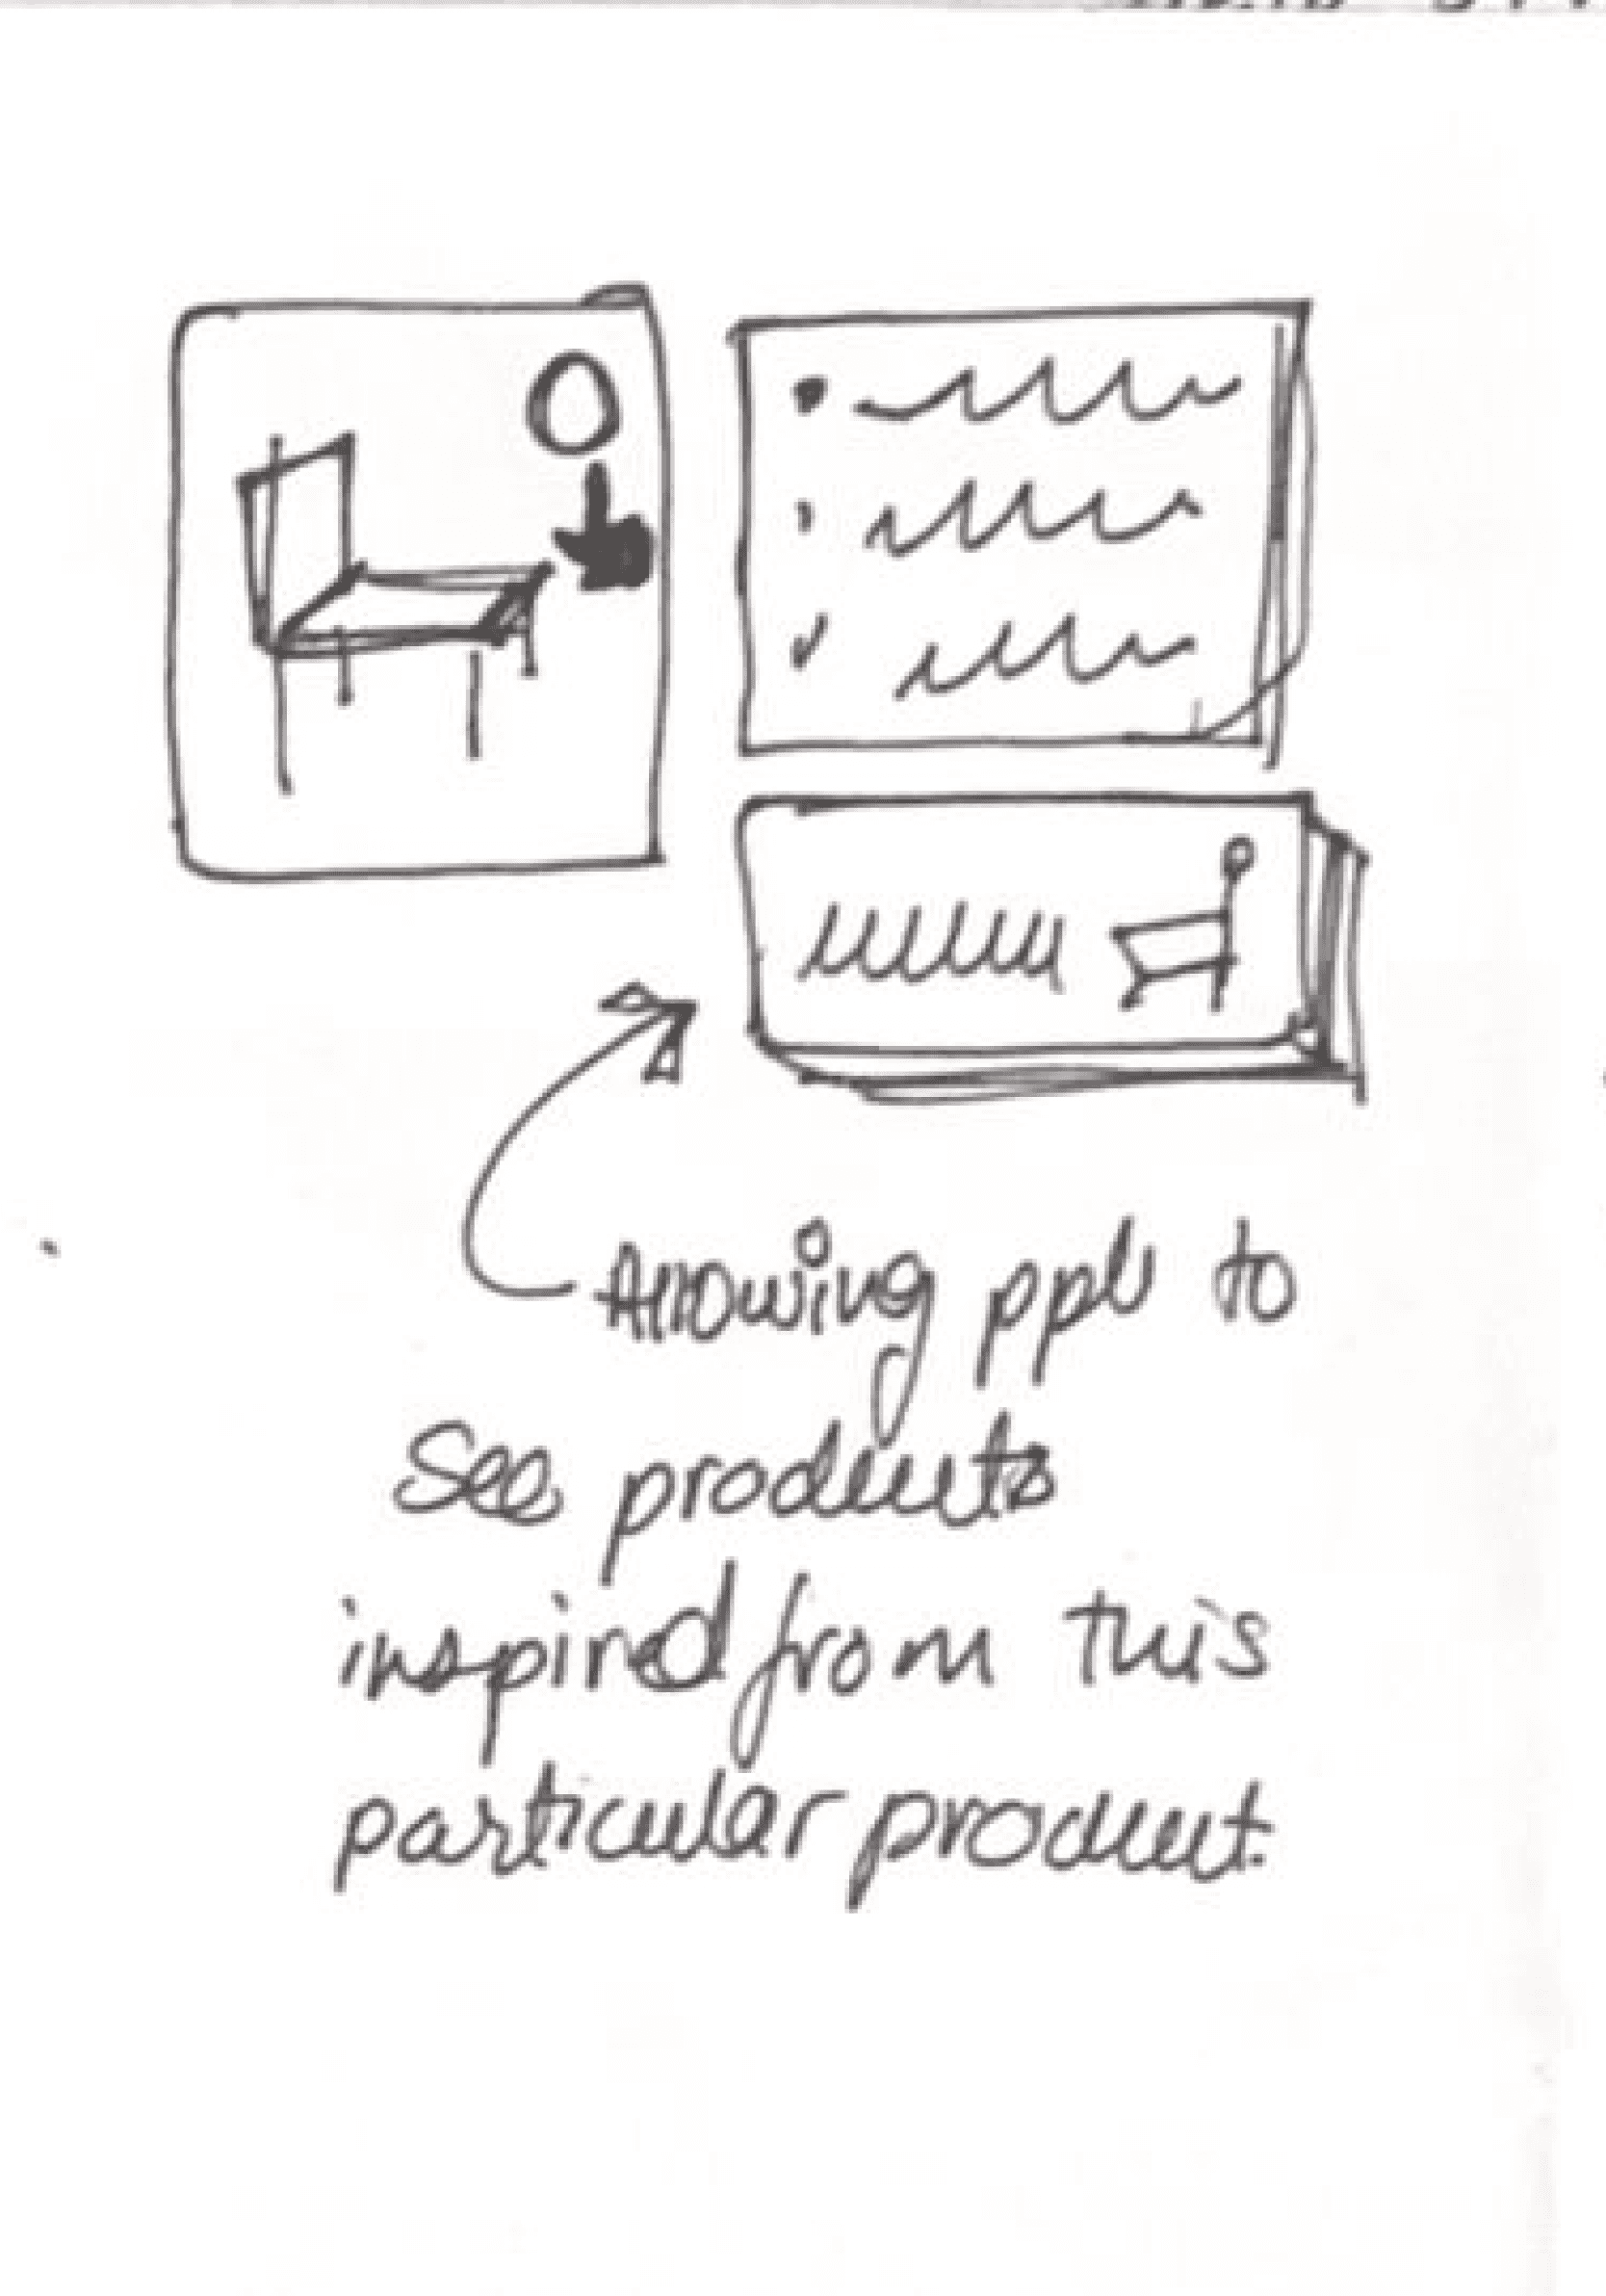 Allowing ppl to
See products
inspired from this
particular product.